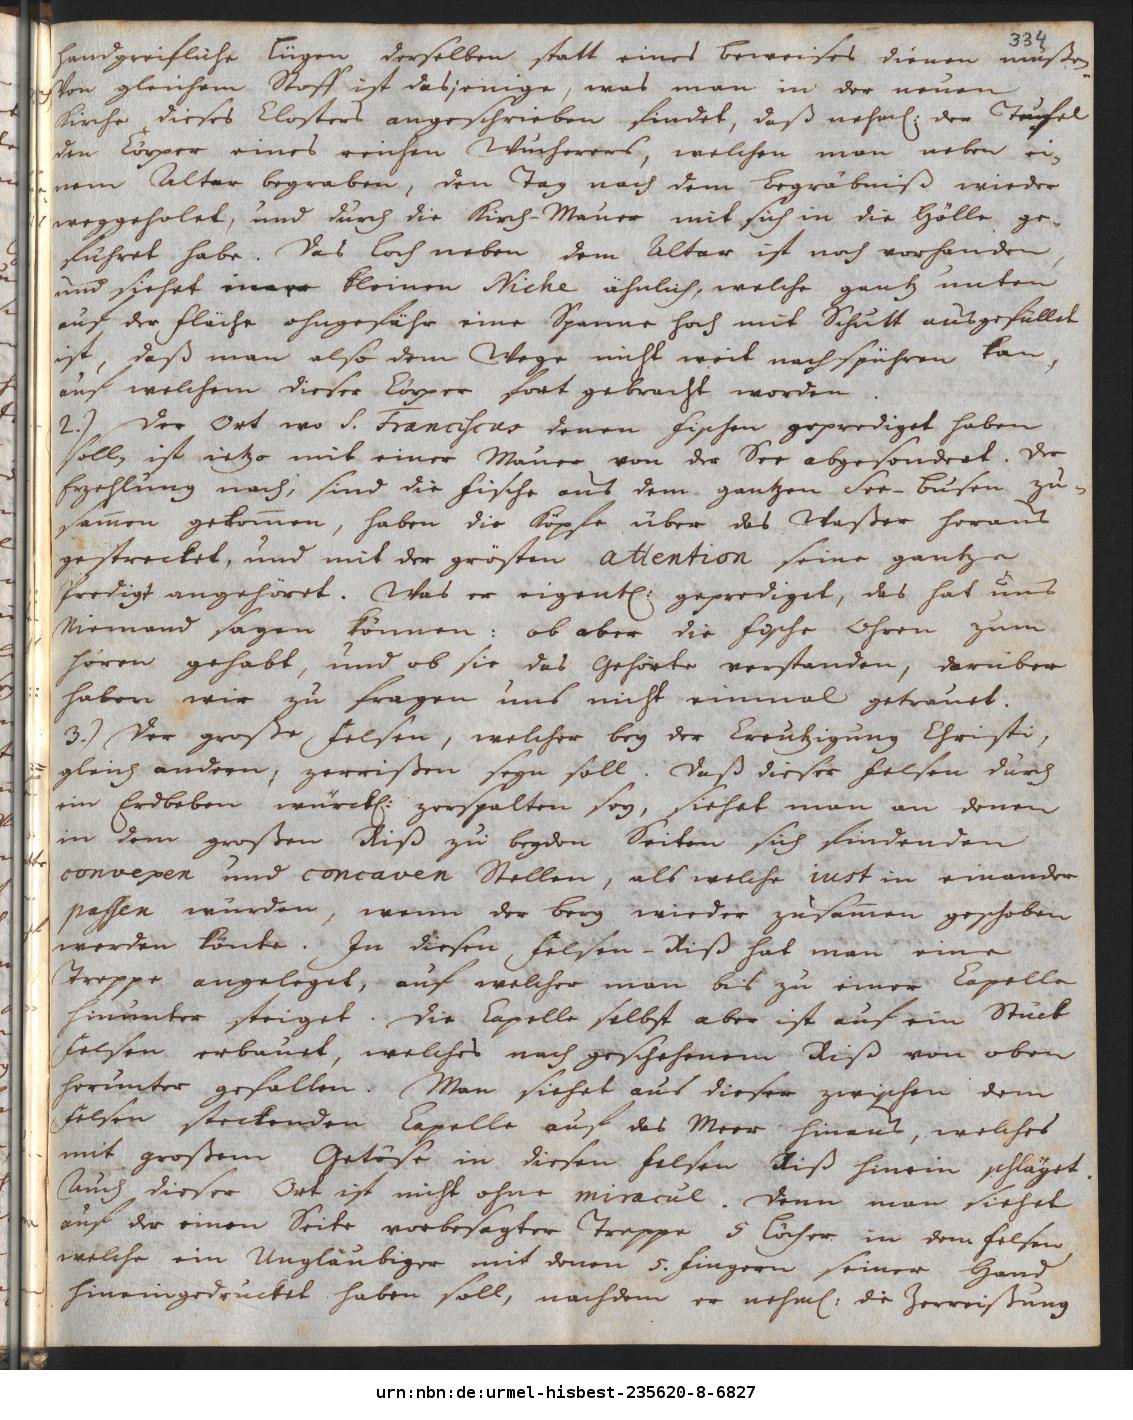 334
handgreifliche Lügen derselben statt eines Beweises dienen müßen.
Von gleichem Stoff ist dasjenige, was man in der neuen
Kirche dieses Closters angeschrieben findet, daß nehml: der Teufel
den Cörper eines reichen Wucherers, welchen man neben ei-
nem Altar begraben, den Tag nach dem Begräbniß wieder
weggeholet, und durch die Kirch-Mauer mit sich in die Hölle ge-
führet habe. Das Loch neben dem Altar ist noch vorhanden,
und siehet einer kleinen Niche ähnlich, welche gantz unten
auf der Fläche ohngefähr eine Spanne hoch mit Schutt ausgefüllet
ist, daß man also dem Wege nicht weit nachspühren kan,
auf welchem dieser Cörper fort gebracht worden.
2.) Der Ort wo S. Franciscus denen Fischen geprediget haben
soll, ist ietzo mit einer Mauer von der See abgesondert. Der
Erzehlung nach, sind die Fische aus dem gantzen See-Busen zu-
sam̄en gekom̄en, haben die Köpfe über das Waßer heraus
gestrecket, und mit der grösten attention seine gantze
Predigt angehöret. Was er eigentl: geprediget, das hat uns
Niemand sagen können: ob aber die Fische Ohren zum
hören gehabt, und ob sie das Gehörte verstanden, darüber
haben wir zu fragen uns nicht einmal getrauet.
3.) Der große Felsen, welcher bey der Creutzigung Christi,
gleich andern, zerrißen seyn soll. Daß dieser Felsen durch
ein Erdbeben würckl: zerspalten sey, siehet man an denen
in dem großen Riß zu beyden Seiten sich findenden
convexen und concaven Stellen, als welche iust in einander
passen würden, wenn der Berg wieder zusam̄en geschoben
werden könte. In diesen Felsen-Riß hat man eine
Treppe angeleget, auf welcher man bis zu einer Capelle
hinunter steiget. Die Capelle selbst aber ist auf ein Stück
Felsen erbauet, welches nach geschehenem Riß von oben
herunter gefallen. Man siehet aus dieser zwischen dem
Felsen steckenden Capelle auf das Meer hinaus, welches
mit großem Getöse in diesen Felsen Riß hinein schläget.
Auch dieser Ort ist nicht ohne miracul. Denn man siehet
auf der einen Seite vorbesagter Treppe 5 Löcher in dem Felsen,
welche ein Ungläubiger mit denen 5. Fingern seiner Hand
hineingedrucket haben soll, nachdem er nehml: die Zerreißung
urn:nbn:de:urmel-hisbest-235620-8-6827